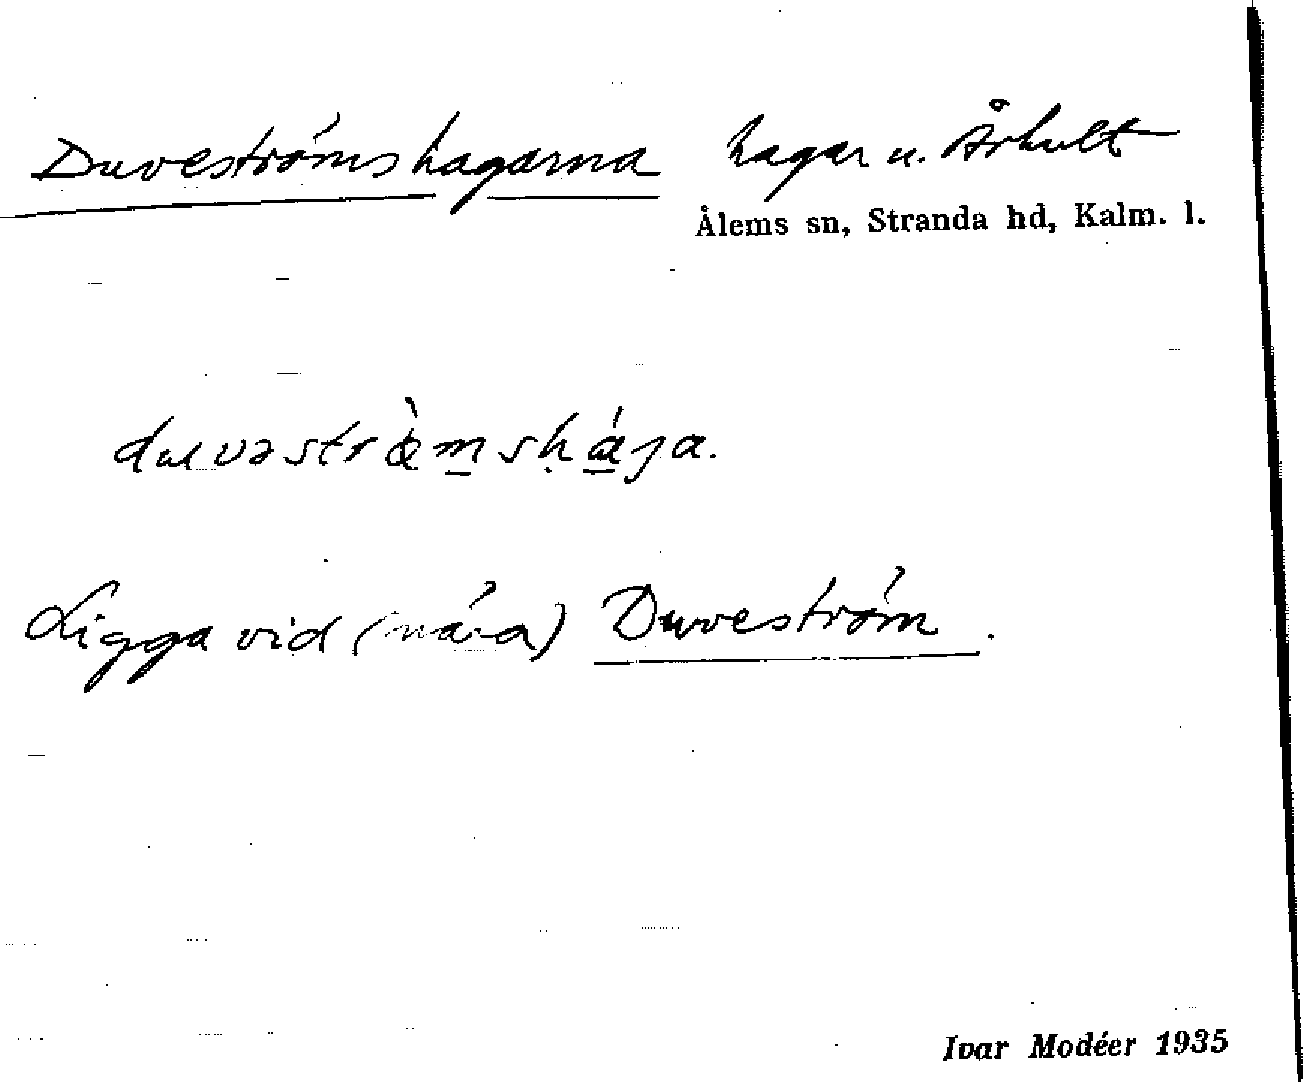 Duveströmshagarna hagar u. Århult
Ålems sn, Stranda hd, Kalm. l.
Ligga vid (nära) Duveström.
Ivar Modéer 1935